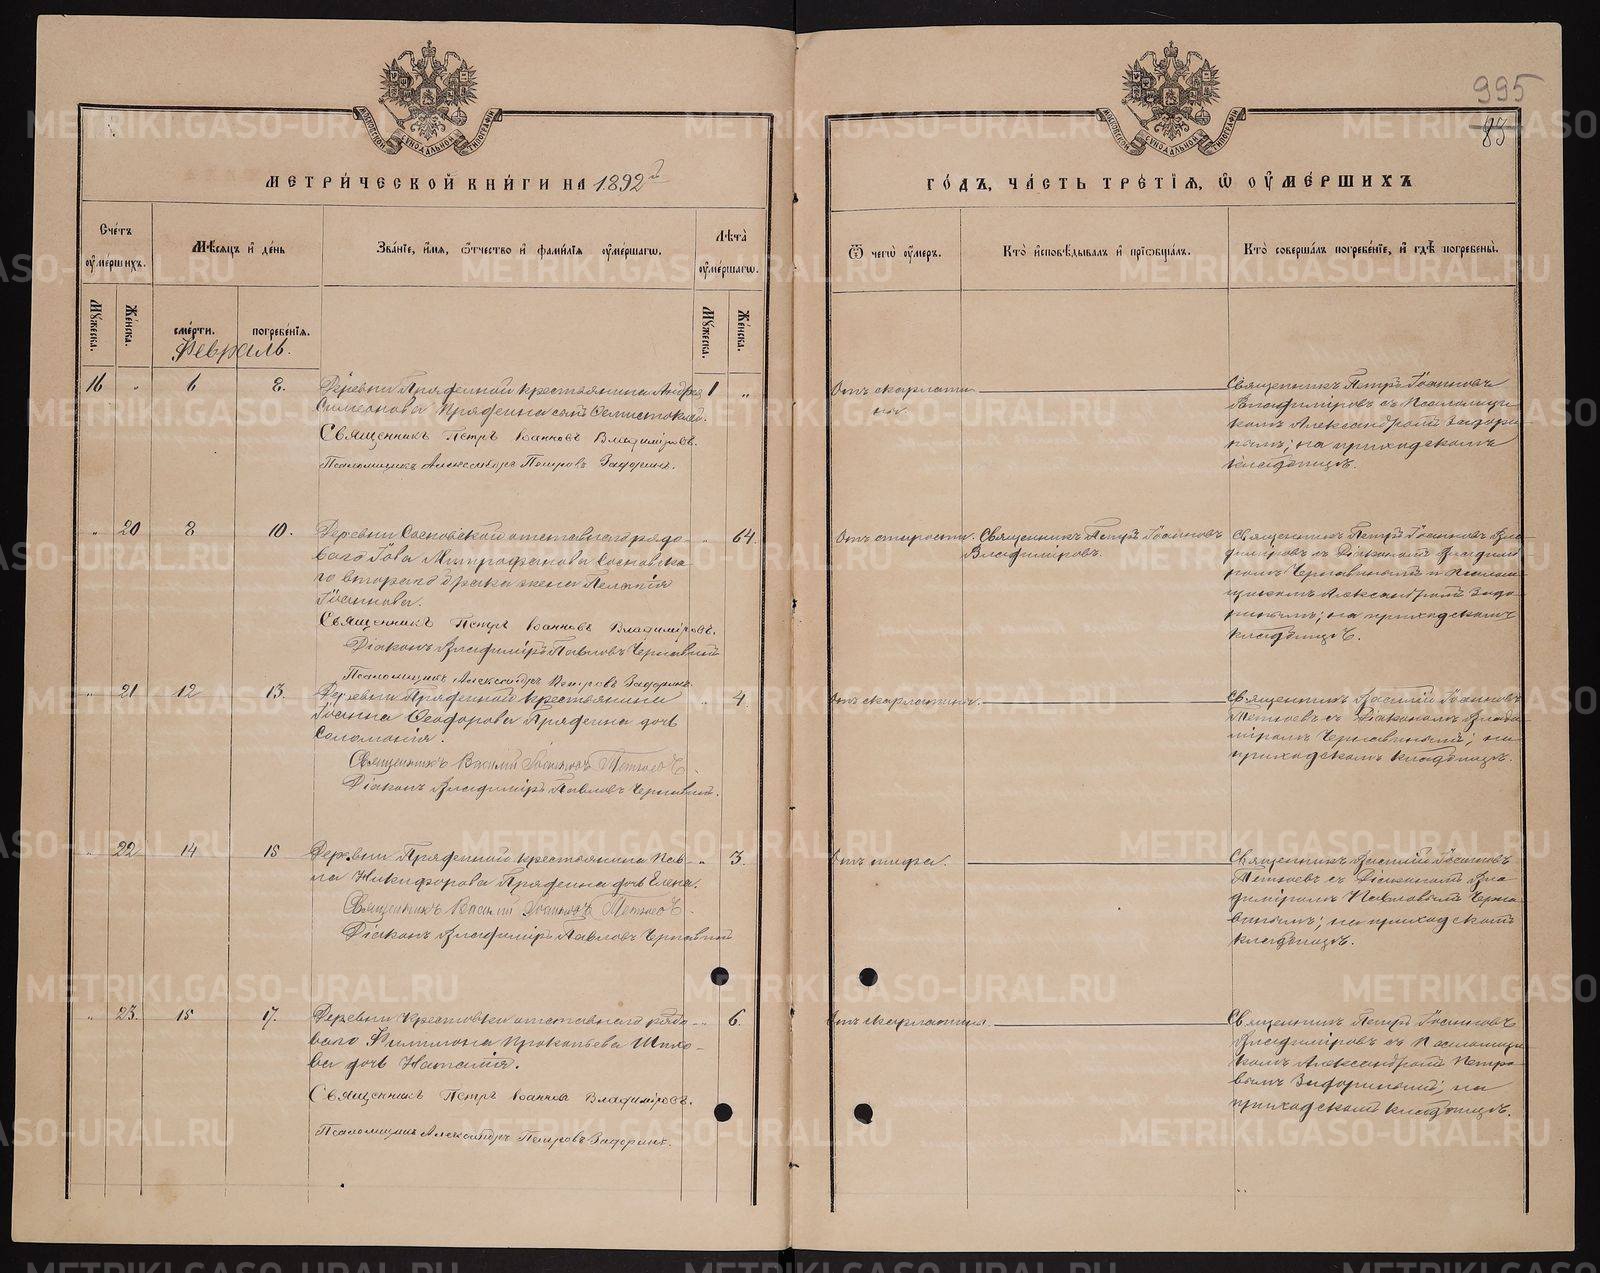 995
83
МОСКОВСКОЙ СѴНОДАЛЬНОЙ ТИПОГРАФІИ
МОСКОВСКОЙ СѴНОДАЛЬНОЙ ТИПОГРАФІИ
МЕТРИ́ЧЕСКОЙ КНИ́ГИ НА 1892й
ГО́ДЪ, ЧА́СТЬ ТРЕ́ТІѦ, Ѿ ОУ҆МЕ́РШИХЪ
Сче́тъ оу҆ме́ршихъ.
Мѣ́сѧцъ и҆ де́нь
Зва́нїе, и҆́мѧ, ѻ҆́тчество и҆ фами́лїѧ оу҆ме́ршагѡ.
Лѣ́та оу҆ме́ршагѡ.
Ѿ чегѡ̀ оу҆́меръ.
Кто̀ и҆сповѣ́дывалъ и҆ прїѡбща́лъ.
Кто̀ соверша́лъ погребе́нїе, и҆ гдѣ̀ погребены̀.
Мꙋ́жеска.
Же́нска.
сме́рти.
погребе́нїѧ.
Мꙋ́жеска.
Же́нска.
Февраль.
16 " 6 8. Деревни Пряфеиной крестьянина Андрея 1 "
Симеонова Пряфеина сын Фемистоклъ.
Священникъ Петръ Іоанновъ Владиміровъ.
Псаломщикъ Александръ Петровъ Задоринъ.
Отъ скарлати
ны.
Священникъ Петръ Іоанновъ
Владиміровъ съ Псаломщи
комъ Александромъ Задори
нымъ; на приходскомъ
кладбищѣ.
" 20 8 10. Деревни Сосновской отставнаго рядо- " 64.
ваго Іова Митрофанова Сосновска
го втораго брака жена Пелагія
Іоаннова.
Священникъ Петръ Іоанновъ Владиміровъ.
Діаконъ Владиміръ Павловъ Чернавинъ
Псаломщикъ Александръ Петровъ Задоринъ.
Отъ старости.
Священникъ Петръ Іоанновъ
Владиміровъ.
Священникъ Петръ Іоанновъ Вла
диміровъ съ Діакономъ Влади
ромъ Чернавинымъ и Псалом
щикомъ Александромъ Задо
ринымъ; на приходскомъ
кладбищѣ.
" 21 12 13. Деревни Пряфеиной крестьянина " 4.
Іоанна Ѳеодорова Пряфеина дочь
Соломонія.
Священникъ Василій Іоанновъ
Діаконъ Владиміръ Павловъ Чернавинъ.
Отъ скарлатины.
Священникъ Василій Іоанновъ
съ Діакономъ Влади
міромъ Чернавинымъ; на
приходскомъ кладбищѣ.
" 22 14 15 Деревни Пряфеиной крестьянина Пав- " 3.
ла Никифорова Пряфеина дочь Елена.
Священникъ Василій Іоанновъ
Діаконъ Владиміръ Павловъ Чернавинъ
Отъ тифа.
Священникъ Василій Іоанновъ
съ Діакономъ Вла
диміромъ Павловымъ Черна
винымъ; на приходскомъ
кладбищѣ.
" 23. 15 17. Деревни Крестовки отставнаго рядо- " 6.
ваго Филимона Прокопьева
дочь Наталія.
Священникъ Петръ Іоанновъ Владиміровъ.
Псаломщикъ Александръ Петровъ Задоринъ.
Отъ скарлатины.
Священникъ Петръ Іоанновъ
Владиміровъ съ Псаломщи
комъ Александромъ Петро
вымъ Задоринымъ; на
приходскомъ кладбищѣ.
METRIKI.GASO-URAL.RU